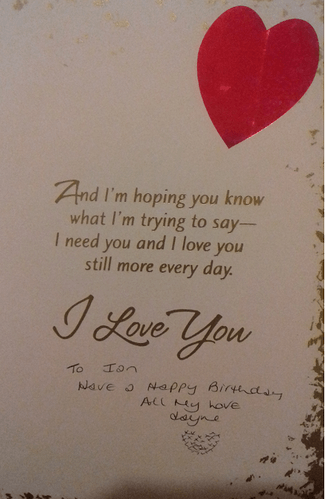 And I'm hoping you know
what I'm trying to say—
I need you and I love you
still more every day.
I Love You
To Ian
Have a Happy Birthday
All My Love
Jayne